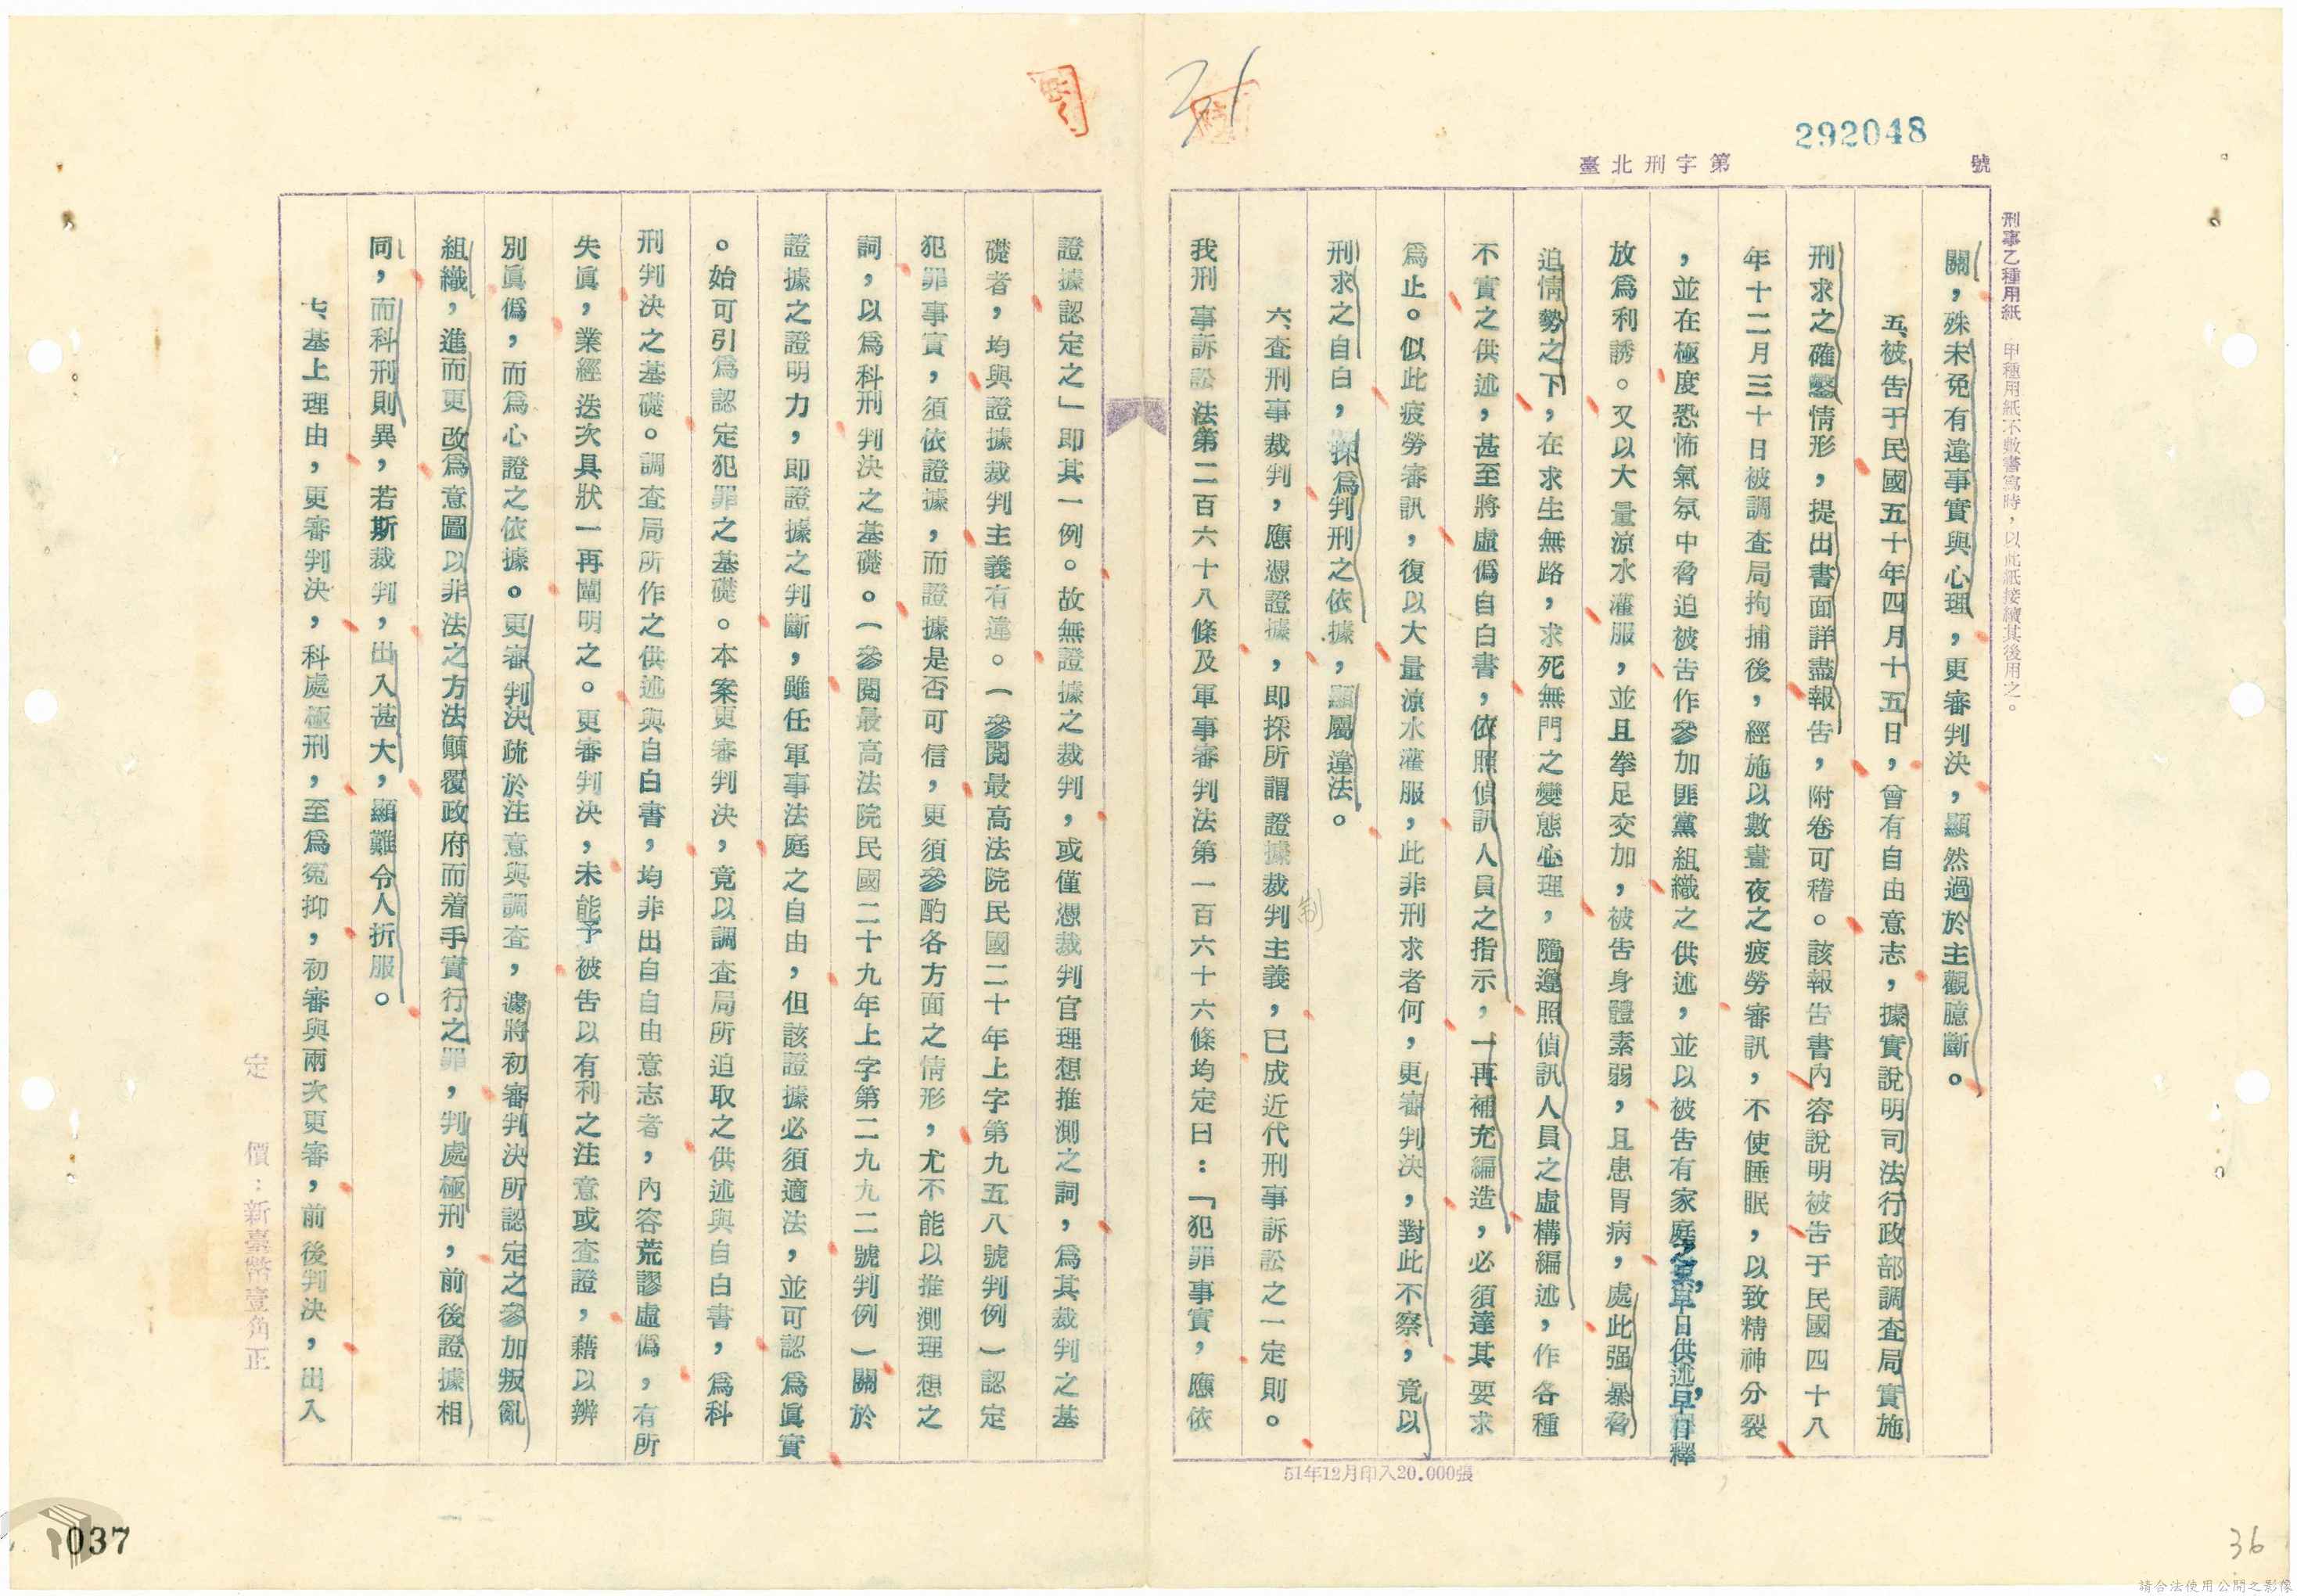 292048
臺北刑字第
號
刑事乙種用紙 甲種用紙不敷書寫時，以此紙接續其後用之。
31
關，殊未免有違事實與心理，更審判決，顯然過於主觀臆斷。
五、被告于民國五十年四月十五日，曾有自由意志，據實說明司法行政部調查局實施
刑求之確鑿情形，提出書面詳盡報告，附卷可稽。該報告書內容說明被告于民國四十八
年十二月三十日被調查局拘捕後，經施以數晝夜之疲勞審訊，不使睡眠，以致精神分裂
，並在極度恐怖氣氛中脅迫被告作參加匪黨組織之供述，並以被告有家庭之累，早日供述，早日釋
放爲利誘。又以大量涼水灌服，並且拳足交加，被告身體素弱，且患胃病，處此强暴脅
迫情勢之下，在求生無路，求死無門之變態心理，隨遵照偵訊人員之虛構編述，作各種
不實之供述，甚至將虛僞自白書，依照偵訊人員之指示，一再補充編造，必須達其要求
爲止。似此疲勞審訊，復以大量涼水灌服，此非刑求者何，更審判決，對此不察，竟以
刑求之自白，採爲判刑之依據，顯屬違法。
六、查刑事裁判，應憑證據，即採所謂證據裁判主義，已成近代刑事訴訟之一定則。
制
我刑事訴訟法第二百六十八條及軍事審判法第一百六十六條均定曰：「犯罪事實，應依
51年12月印入20.000張
證據認定之」即其一例。故無證據之裁判，或僅憑裁判官理想推測之詞，爲其裁判之基
礎者，均與證據裁判主義有違。（參閱最高法院民國二十年上字第九五八號判例）認定
犯罪事實，須依證據，而證據是否可信，更須參酌各方面之情形，尤不能以推測理想之
詞，以爲科刑判決之基礎。（參閱最高法院民國二十九年上字第二九九二號判例）關於
證據之證明力，即證據之判斷，雖任軍事法庭之自由，但該證據必須適法，並可認爲眞實
。始可引爲認定犯罪之基礎。本案更審判決，竟以調查局所迫取之供述與自白書，爲科
刑判決之基礎。調查局所作之供述與自白書，均非出自自由意志者，內容荒謬虛僞，有所
失眞，業經迭次具狀一再闡明之。更審判決，未能予被告以有利之注意或查證，藉以辨
別眞僞，而爲心證之依據。更審判決疏於注意與調查，遽將初審判決所認定之參加叛亂
組織，進而更改爲意圖以非法之方法顛覆政府而着手實行之罪，判處極刑，前後證據相
同，而科刑則異，若斯裁判，出入甚大，顯難令人折服。
七、基上理由，更審判決，科處極刑，至爲冤抑，初審與兩次更審，前後判決，出入
定 價：新臺幣壹角正
037
36
請合法使用公開之影像